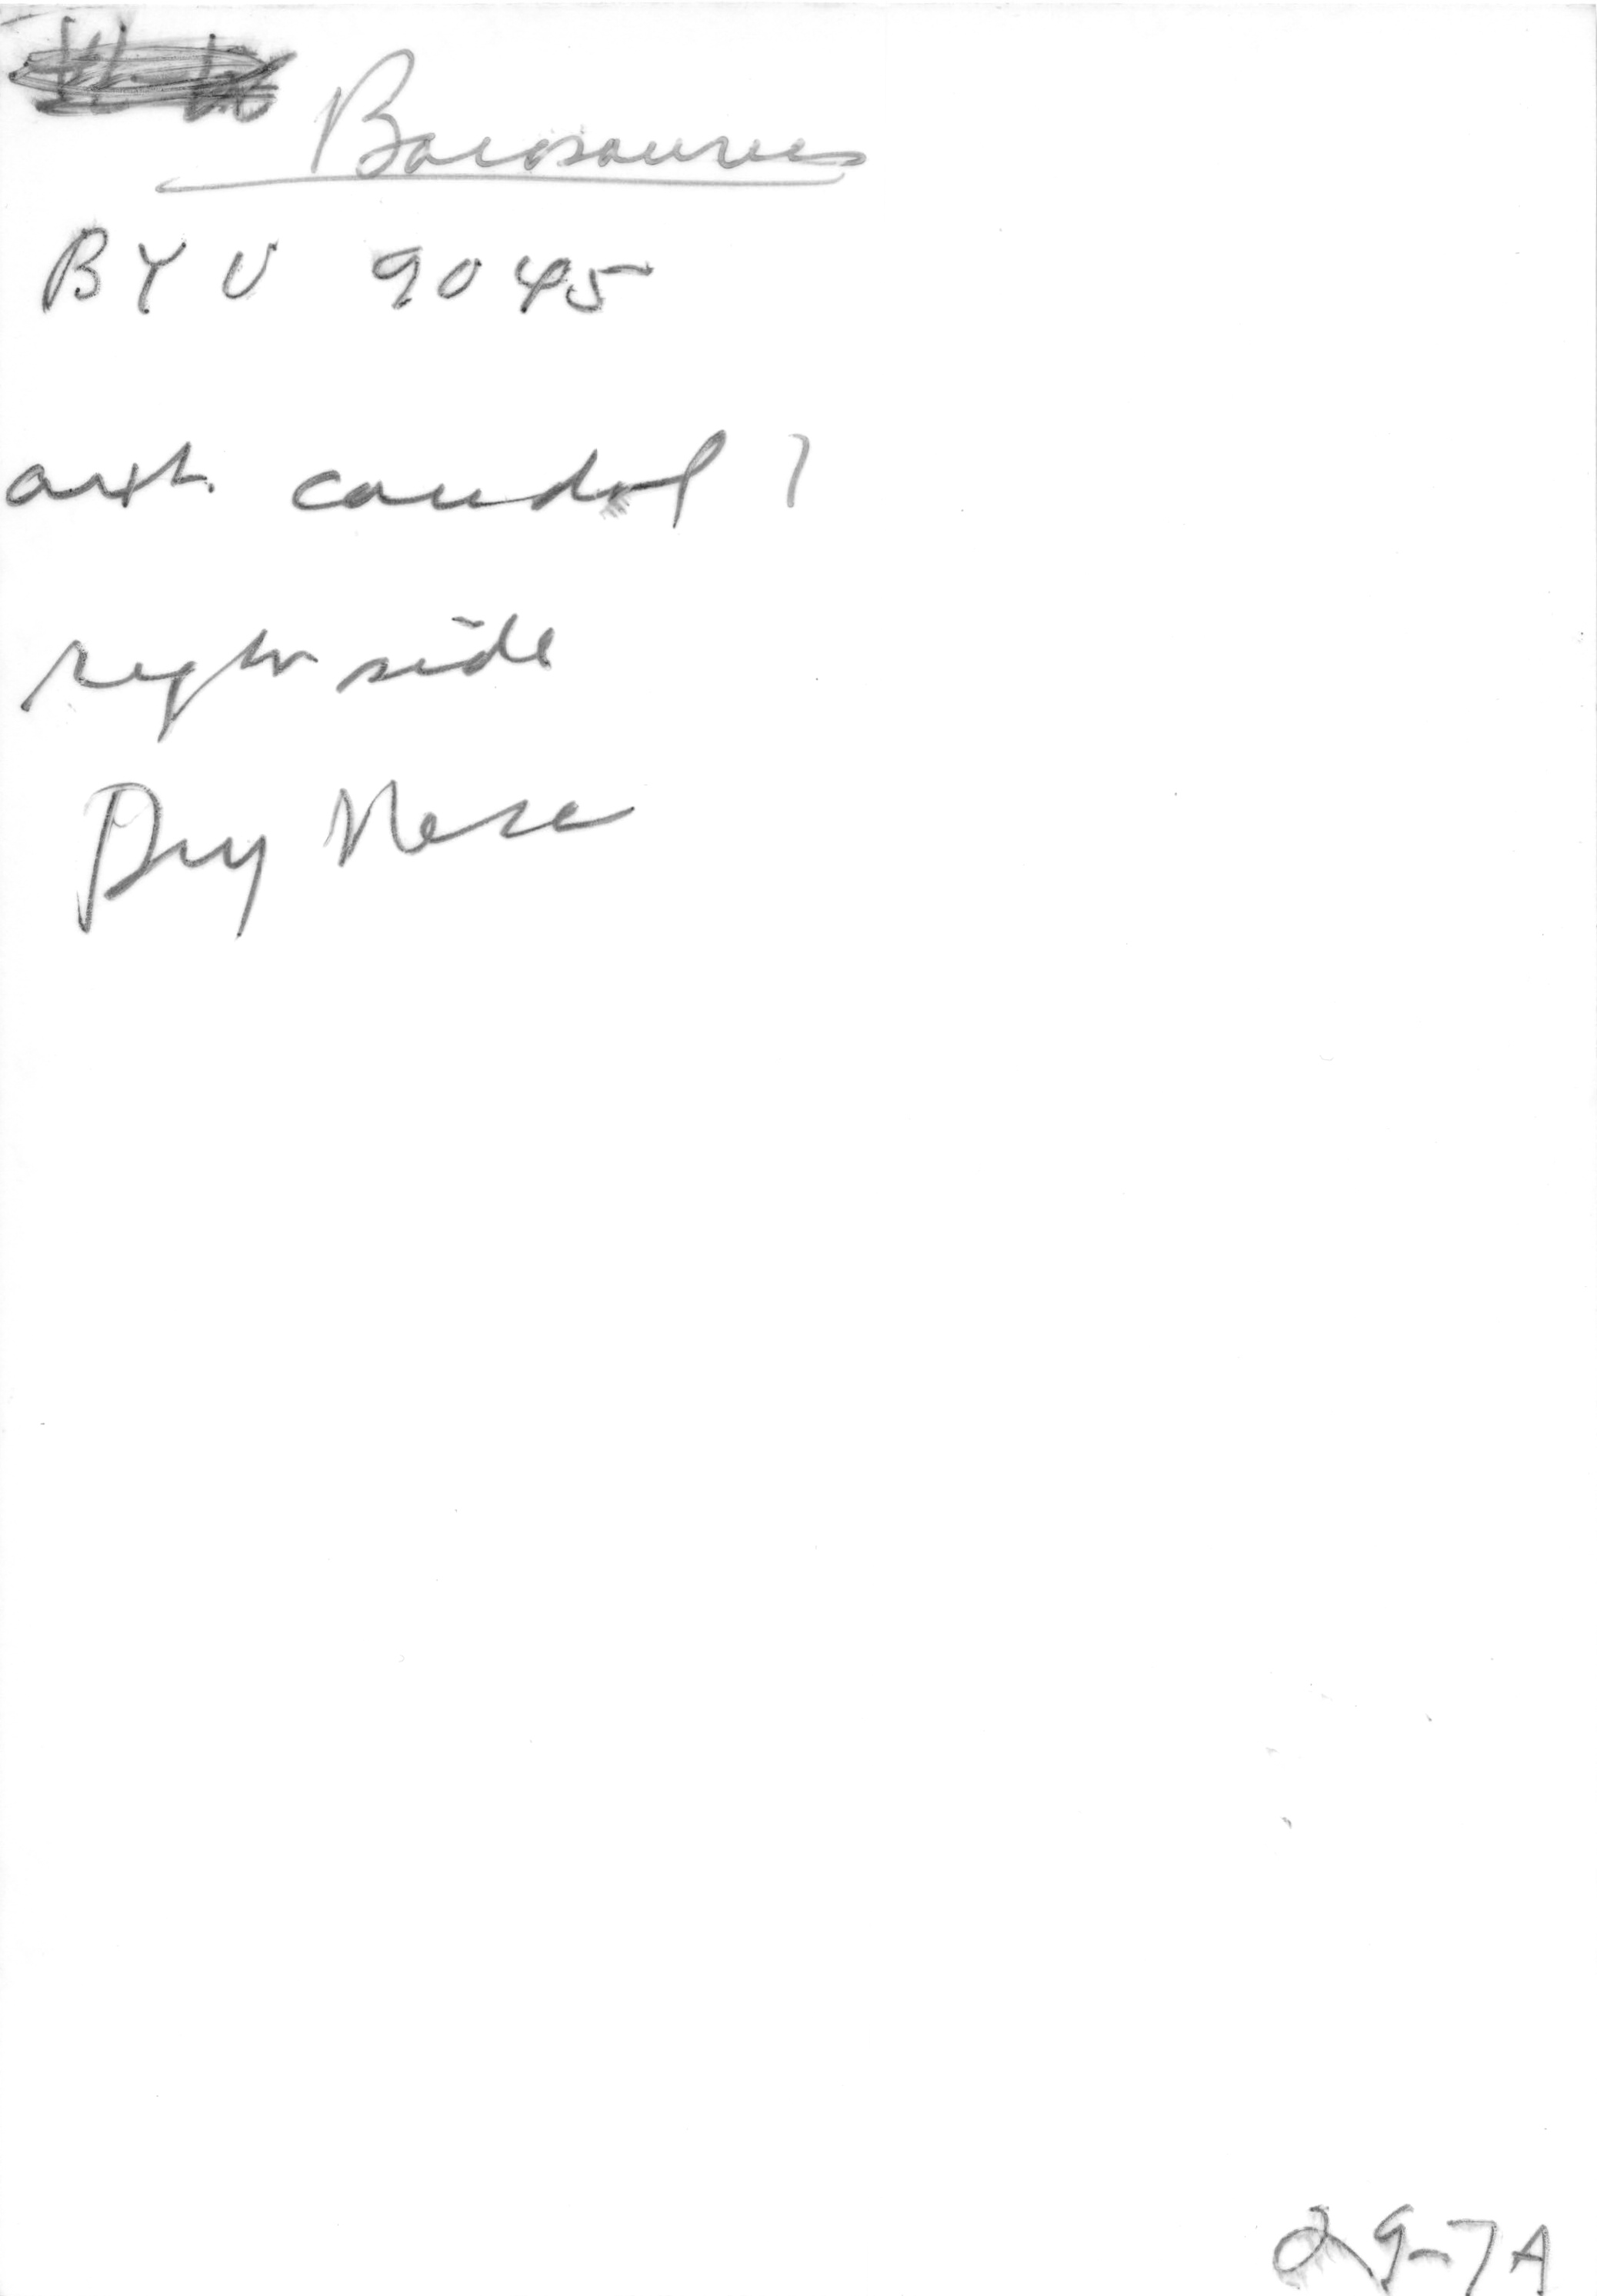 Barosaurus
BYU 9045
ant. caudal ?
right side
Dry Mesa
29-7A